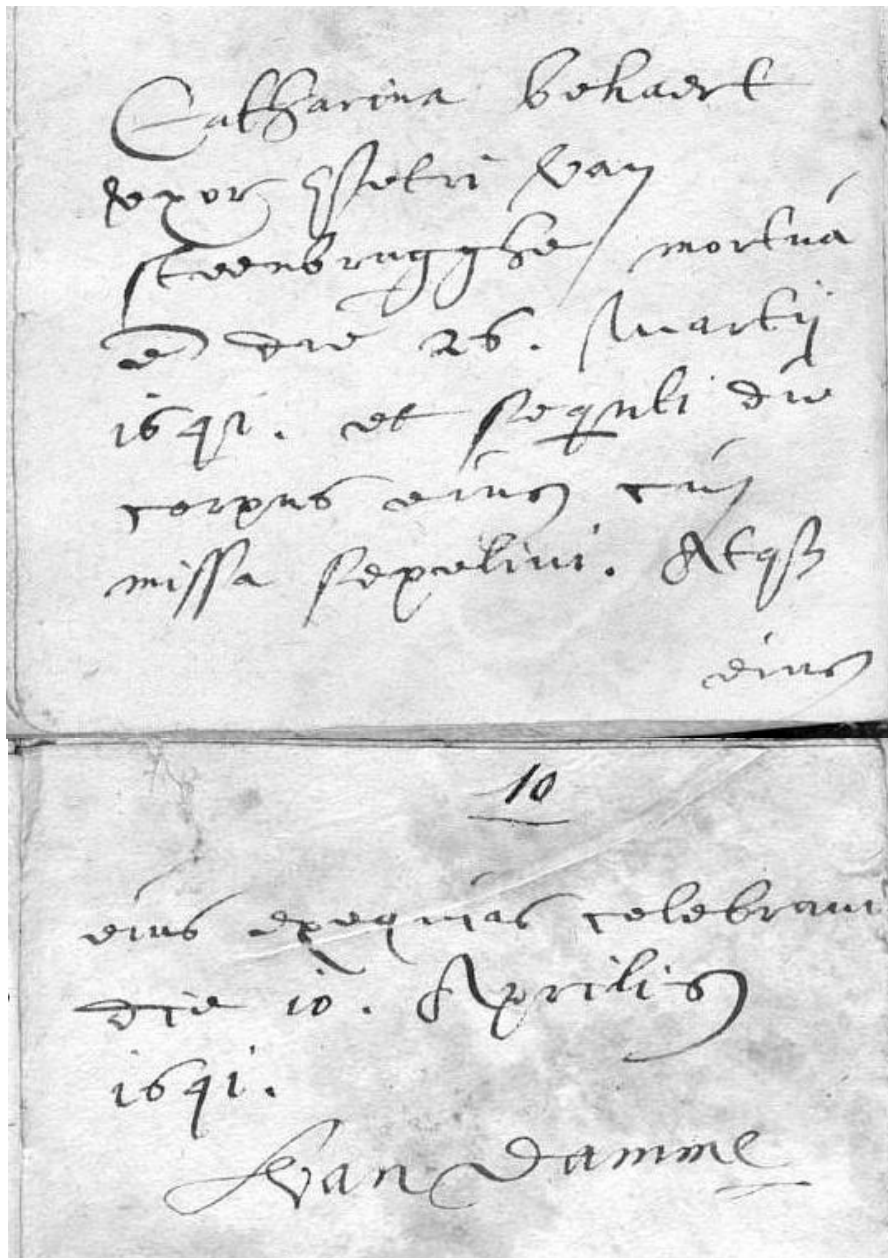 Catharina behaert
uxor Petri Van
steenbrugghe mortua
e die 26. Martij
1691. et sequti die
corpus eius cum
missa sepelivi. Atqz
eius
10
eius exequias celebravi
die 10. Aprilis
1691.
Van Damme